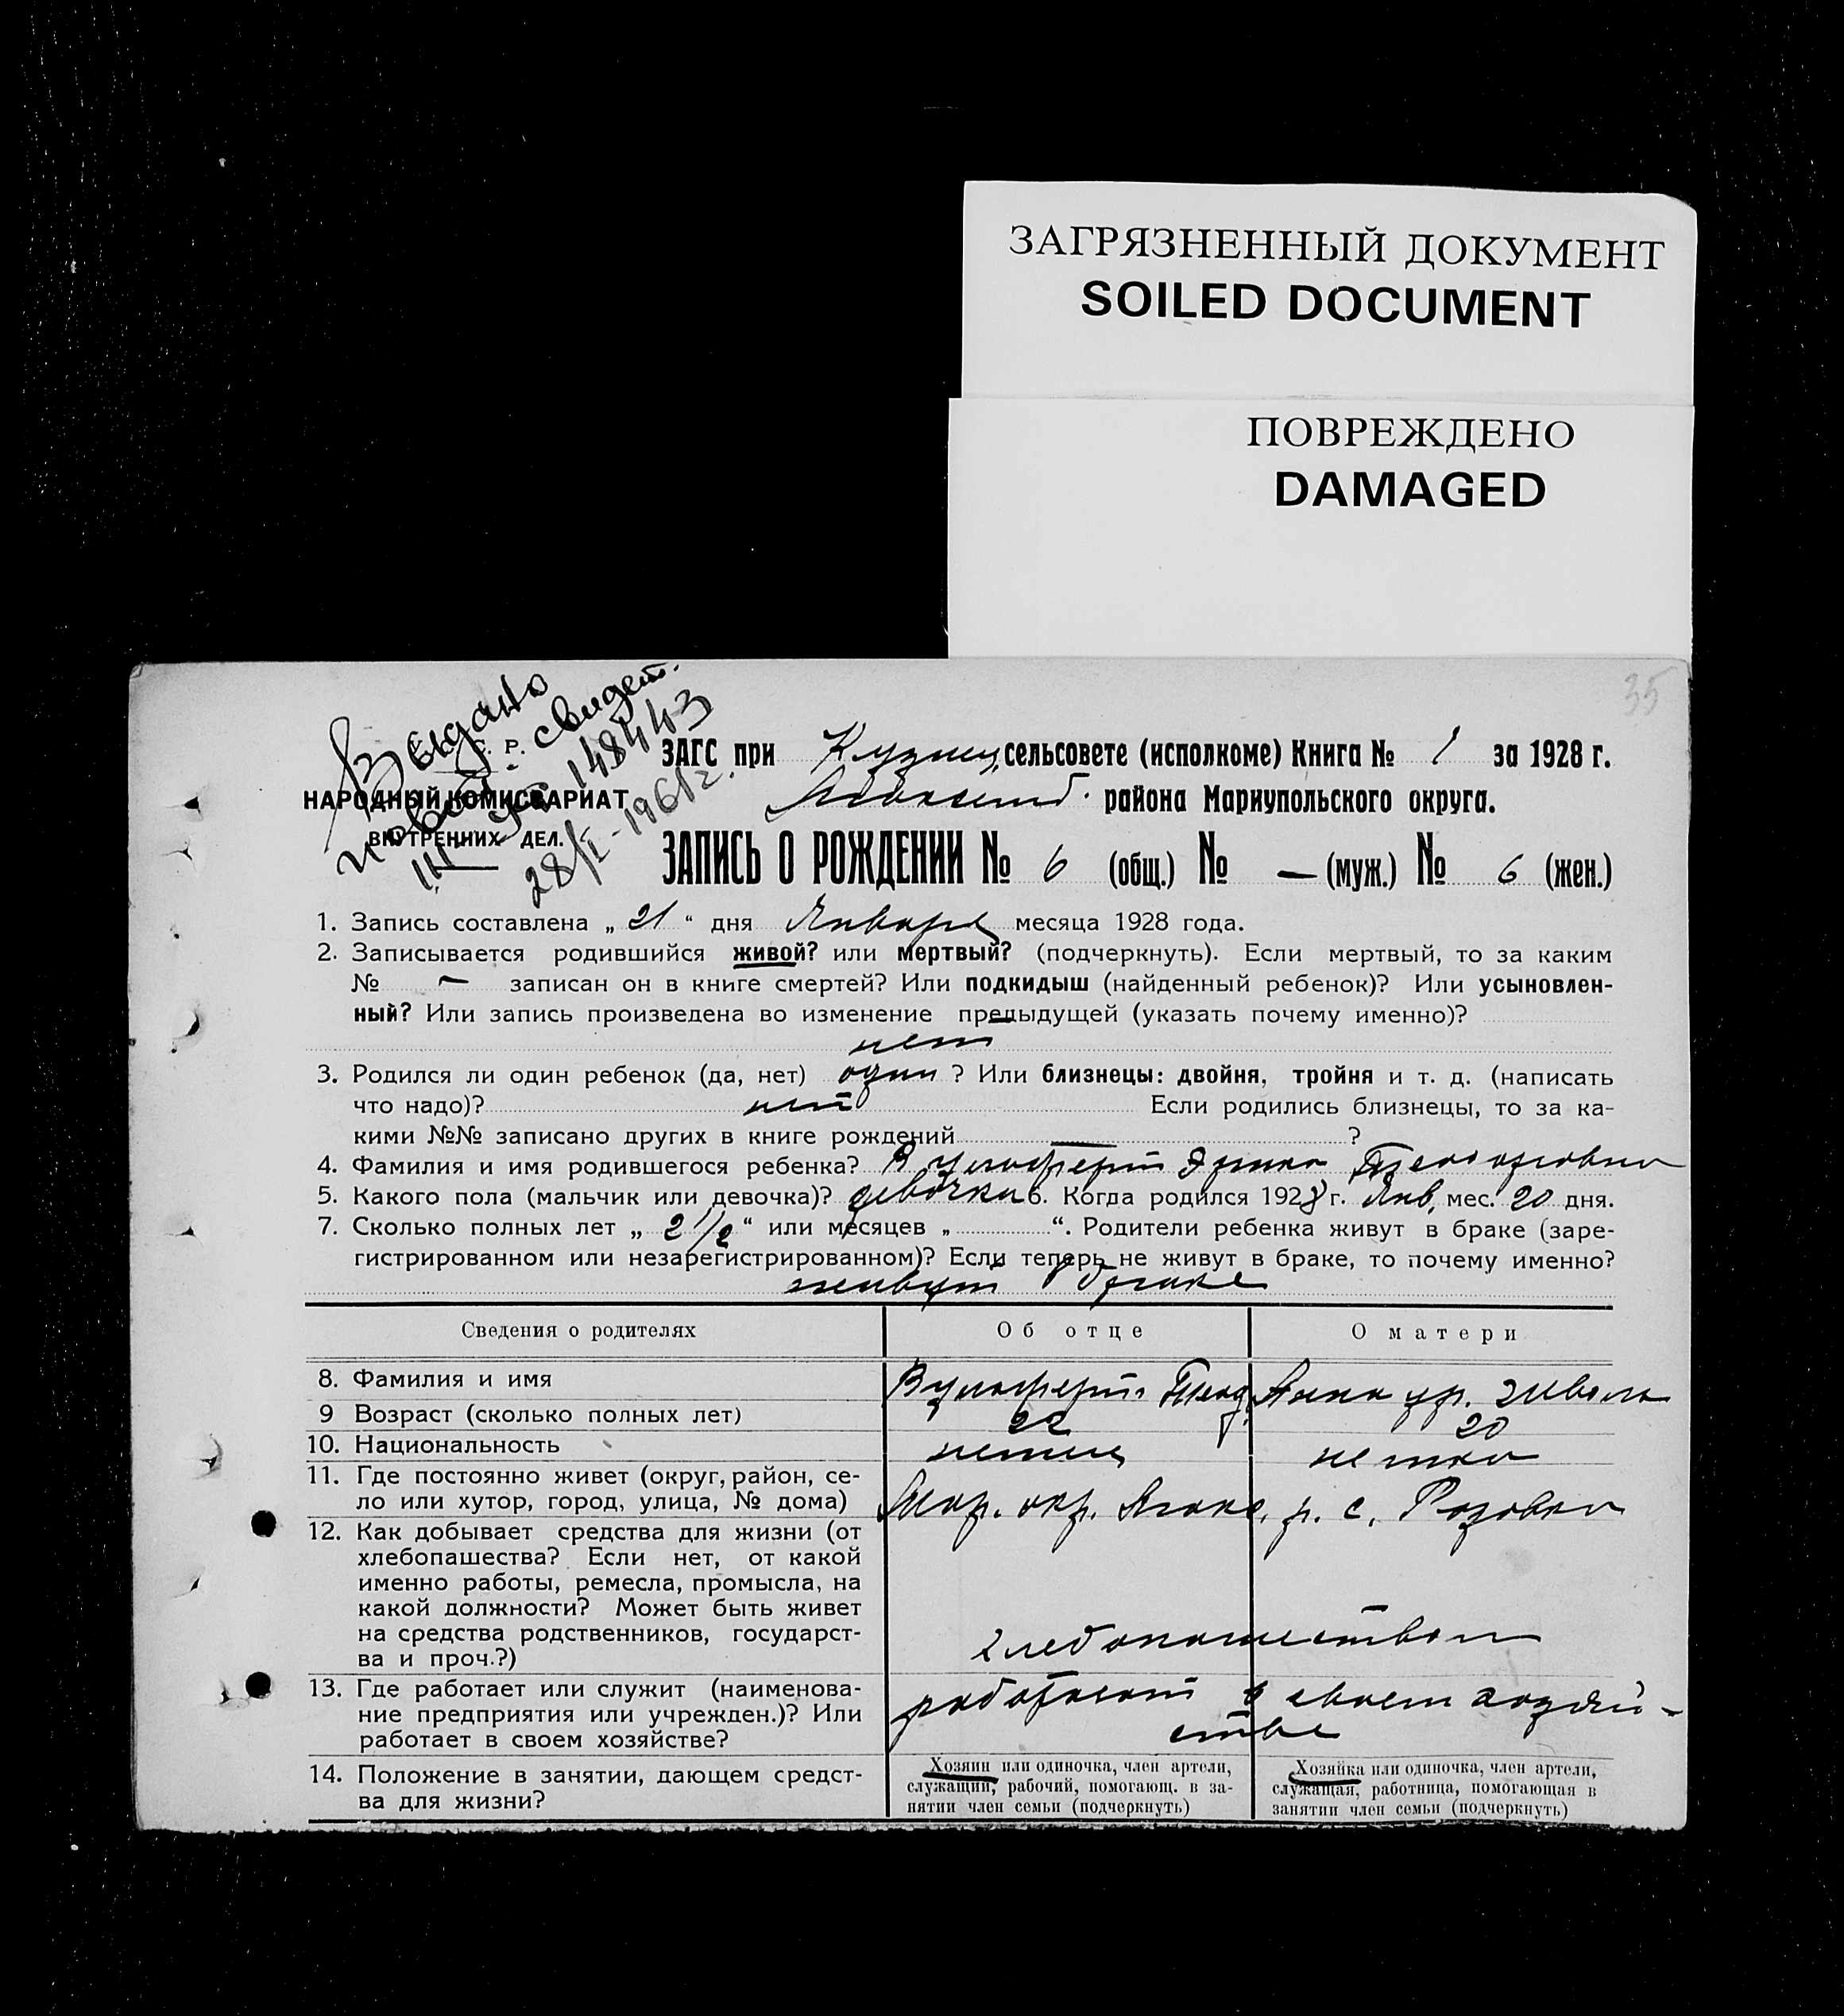 ЗАГРЯЗНЕННЫЙ ДОКУМЕНТ
SOILED DOCUMENT
ПОВРЕЖДЕНО
DAMAGED
35
Выдано
повт. свидет.
148443
28/I-1961г.
С. Р.
НАРОДНЫЙ КОМИССАРИАТ
ВНУТРЕННИХ ДЕЛ.
ЗАГС при Кузнец. сельсовете (исполкоме) Книга № 1 за 1928 г.
района Мариупольского округа.
ЗАПИСЬ О РОЖДЕНИИ № 6 (общ.) № — (муж.) № 6 (жен.)
1. Запись составлена „ 21 “ дня Января месяца 1928 года.
2. Записывается родившийся живой? или мертвый? (подчеркнуть). Если мертвый, то за каким
№ — записан он в книге смертей? Или подкидыш (найденный ребенок)? Или усыновлен-
ный? Или запись произведена во изменение предыдущей (указать почему именно)?
нет
3. Родился ли один ребенок (да, нет) один ? Или близнецы: двойня, тройня и т. д. (написать
что надо)? нет Если родились близнецы, то за ка-
кими №№ записано других в книге рождений — ?
4. Фамилия и имя родившегося ребенка? Вульферт Эрика Теодоровна
5. Какого пола (мальчик или девочка)? девочка 6. Когда родился 1928 г. Янв. мес. 20 дня.
7. Сколько полных лет „ 2 1/2 “ или месяцев „ “. Родители ребенка живут в браке (заре-
гистрированном или незарегистрированном)? Если теперь не живут в браке, то почему именно?
живут в браке
Сведения о родителях Об отце О матери
8. Фамилия и имя Вульферт Теод. Анна ур.
9 Возраст (сколько полных лет) 22 20
10. Национальность немец немка
11. Где постоянно живет (округ, район, се-
ло или хутор, город, улица, № дома) Мар. окр. р. с. Розовка
12. Как добывает средства для жизни (от
хлебопашества? Если нет, от какой
именно работы, ремесла, промысла, на
какой должности? Может быть живет
на средства родственников, государст-
ва и проч.?) хлебопашеством
13. Где работает или служит (наименова-
ние предприятия или учрежден.)? Или
работает в своем хозяйстве? работает в своем хозяй-
стве
14. Положение в занятии, дающем средст-
ва для жизни?
Хозяин или одиночка, член артели,
служащий, рабочий, помогающ. в за-
нятии член семьи (подчеркнуть)
Хозяйка или одиночка, член артели,
служащая, работница, помогающая в
занятии член семьи (подчеркнуть)